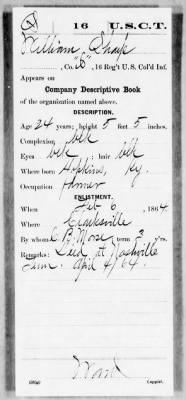 16 U.S.C.T.
William Sharp
, Co. "B", 16 Reg't U.S. Col'd Inf.
Appears on
Company Descriptive Book
of the organization named above.
DESCRIPTION.
Age 24 years; height 5 feet 5 inches.
Complexion blk
Eyes blk ; hair blk
Where born Hopkins, Ky.
Occupation farmer
ENLISTMENT.
When Feb 6, 1864.
Where Clarksville
By whom B. Morse; term 3 y'rs.
Remarks: Died at Nashville
Tenn. April 4/64.
Ward
Copyist.